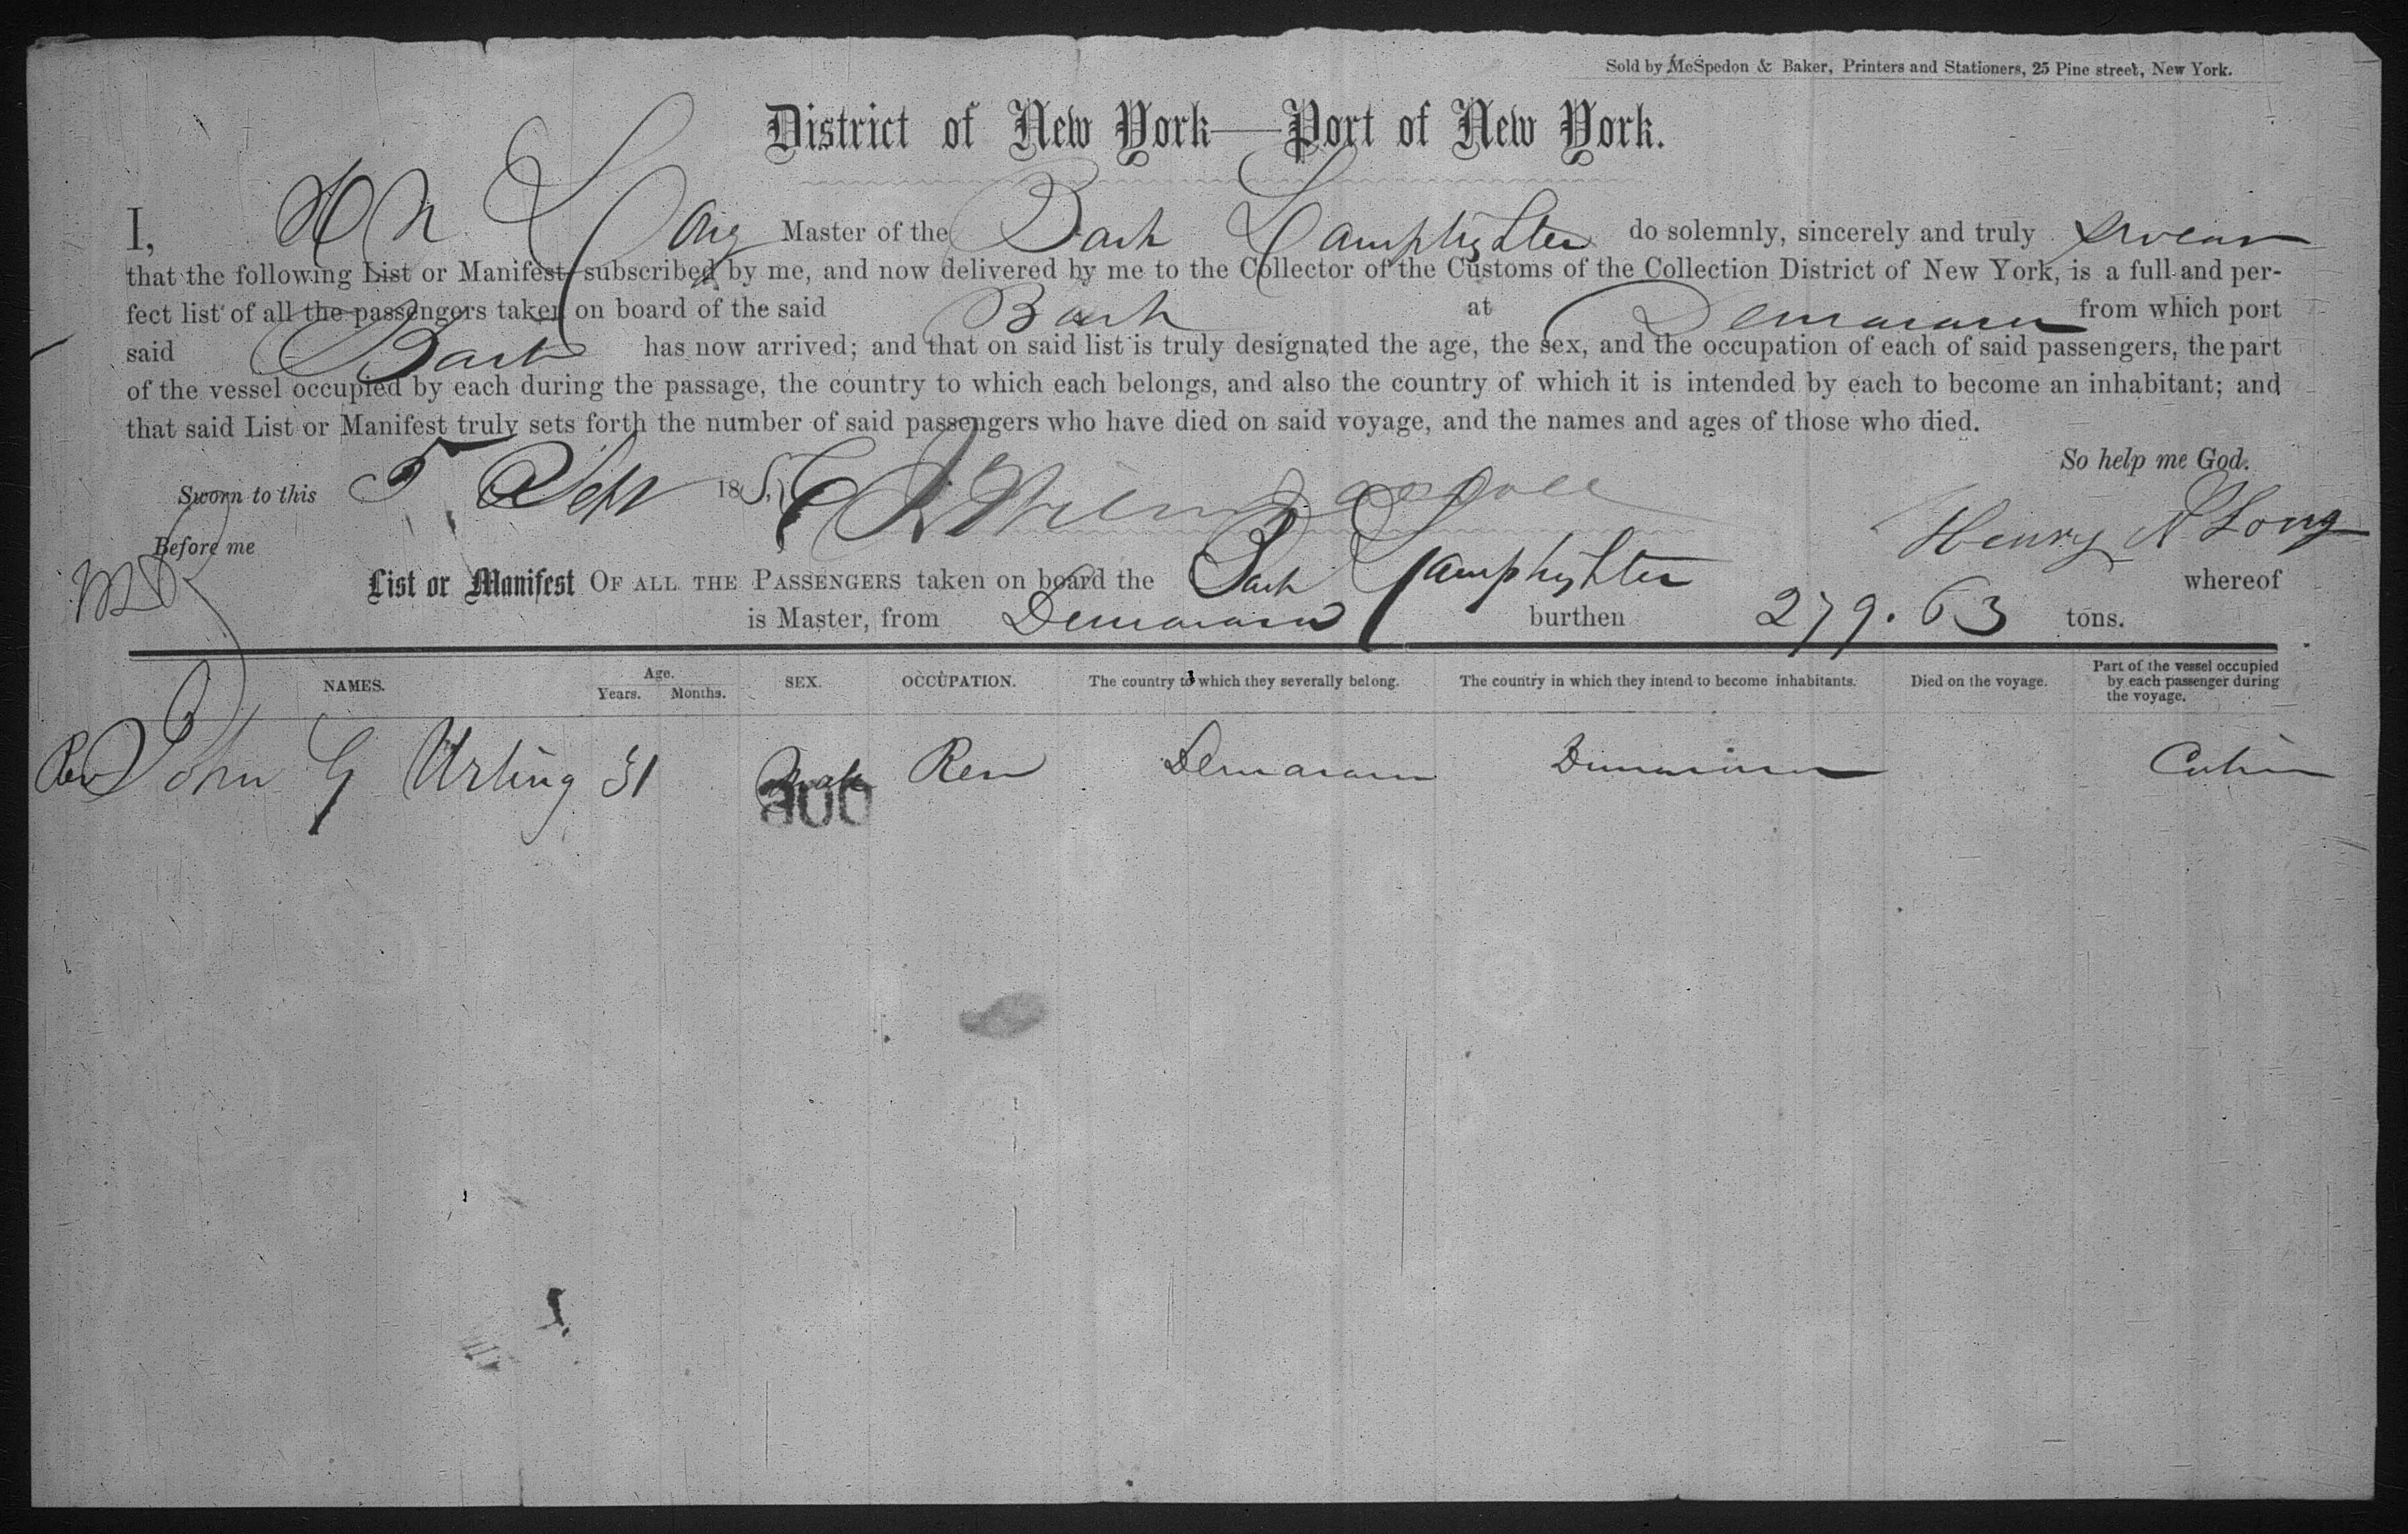 Sold by McSpedon & Baker, Printers and Stationers, 25 Pine street, New York.
District of New York—Port of New York.
I, H N Long Master of the Bark Lamplighter do solemnly, sincerely and truly swear
that the following List or Manifest subscribed by me, and now delivered by me to the Collector of the Customs of the Collection District of New York, is a full and per-
fect list of all the passengers taken on board of the said Bark at Demarara from which port
said Bark has now arrived; and that on said list is truly designated the age, the sex, and the occupation of each of said passengers, the part
of the vessel occupied by each during the passage, the country to which each belongs, and also the country of which it is intended by each to become an inhabitant; and
that said List or Manifest truly sets forth the number of said passengers who have died on said voyage, and the names and ages of those who died.
So help me God.
Sworn to this 5 Sept 1856
Henry N Long
Before me
List or Manifest OF ALL THE PASSENGERS taken on board the Bark Lamplighter whereof
is Master, from Demarara burthen 279.63 tons.
NAMES. Age. Years. Months. SEX. OCCUPATION. The country to which they severally belong. The country in which they intend to become inhabitants. Died on the voyage. Part of the vessel occupied by each passenger during the voyage.
Rev John G Urling 31 Male Rev Demarara Demarara Cabin
800